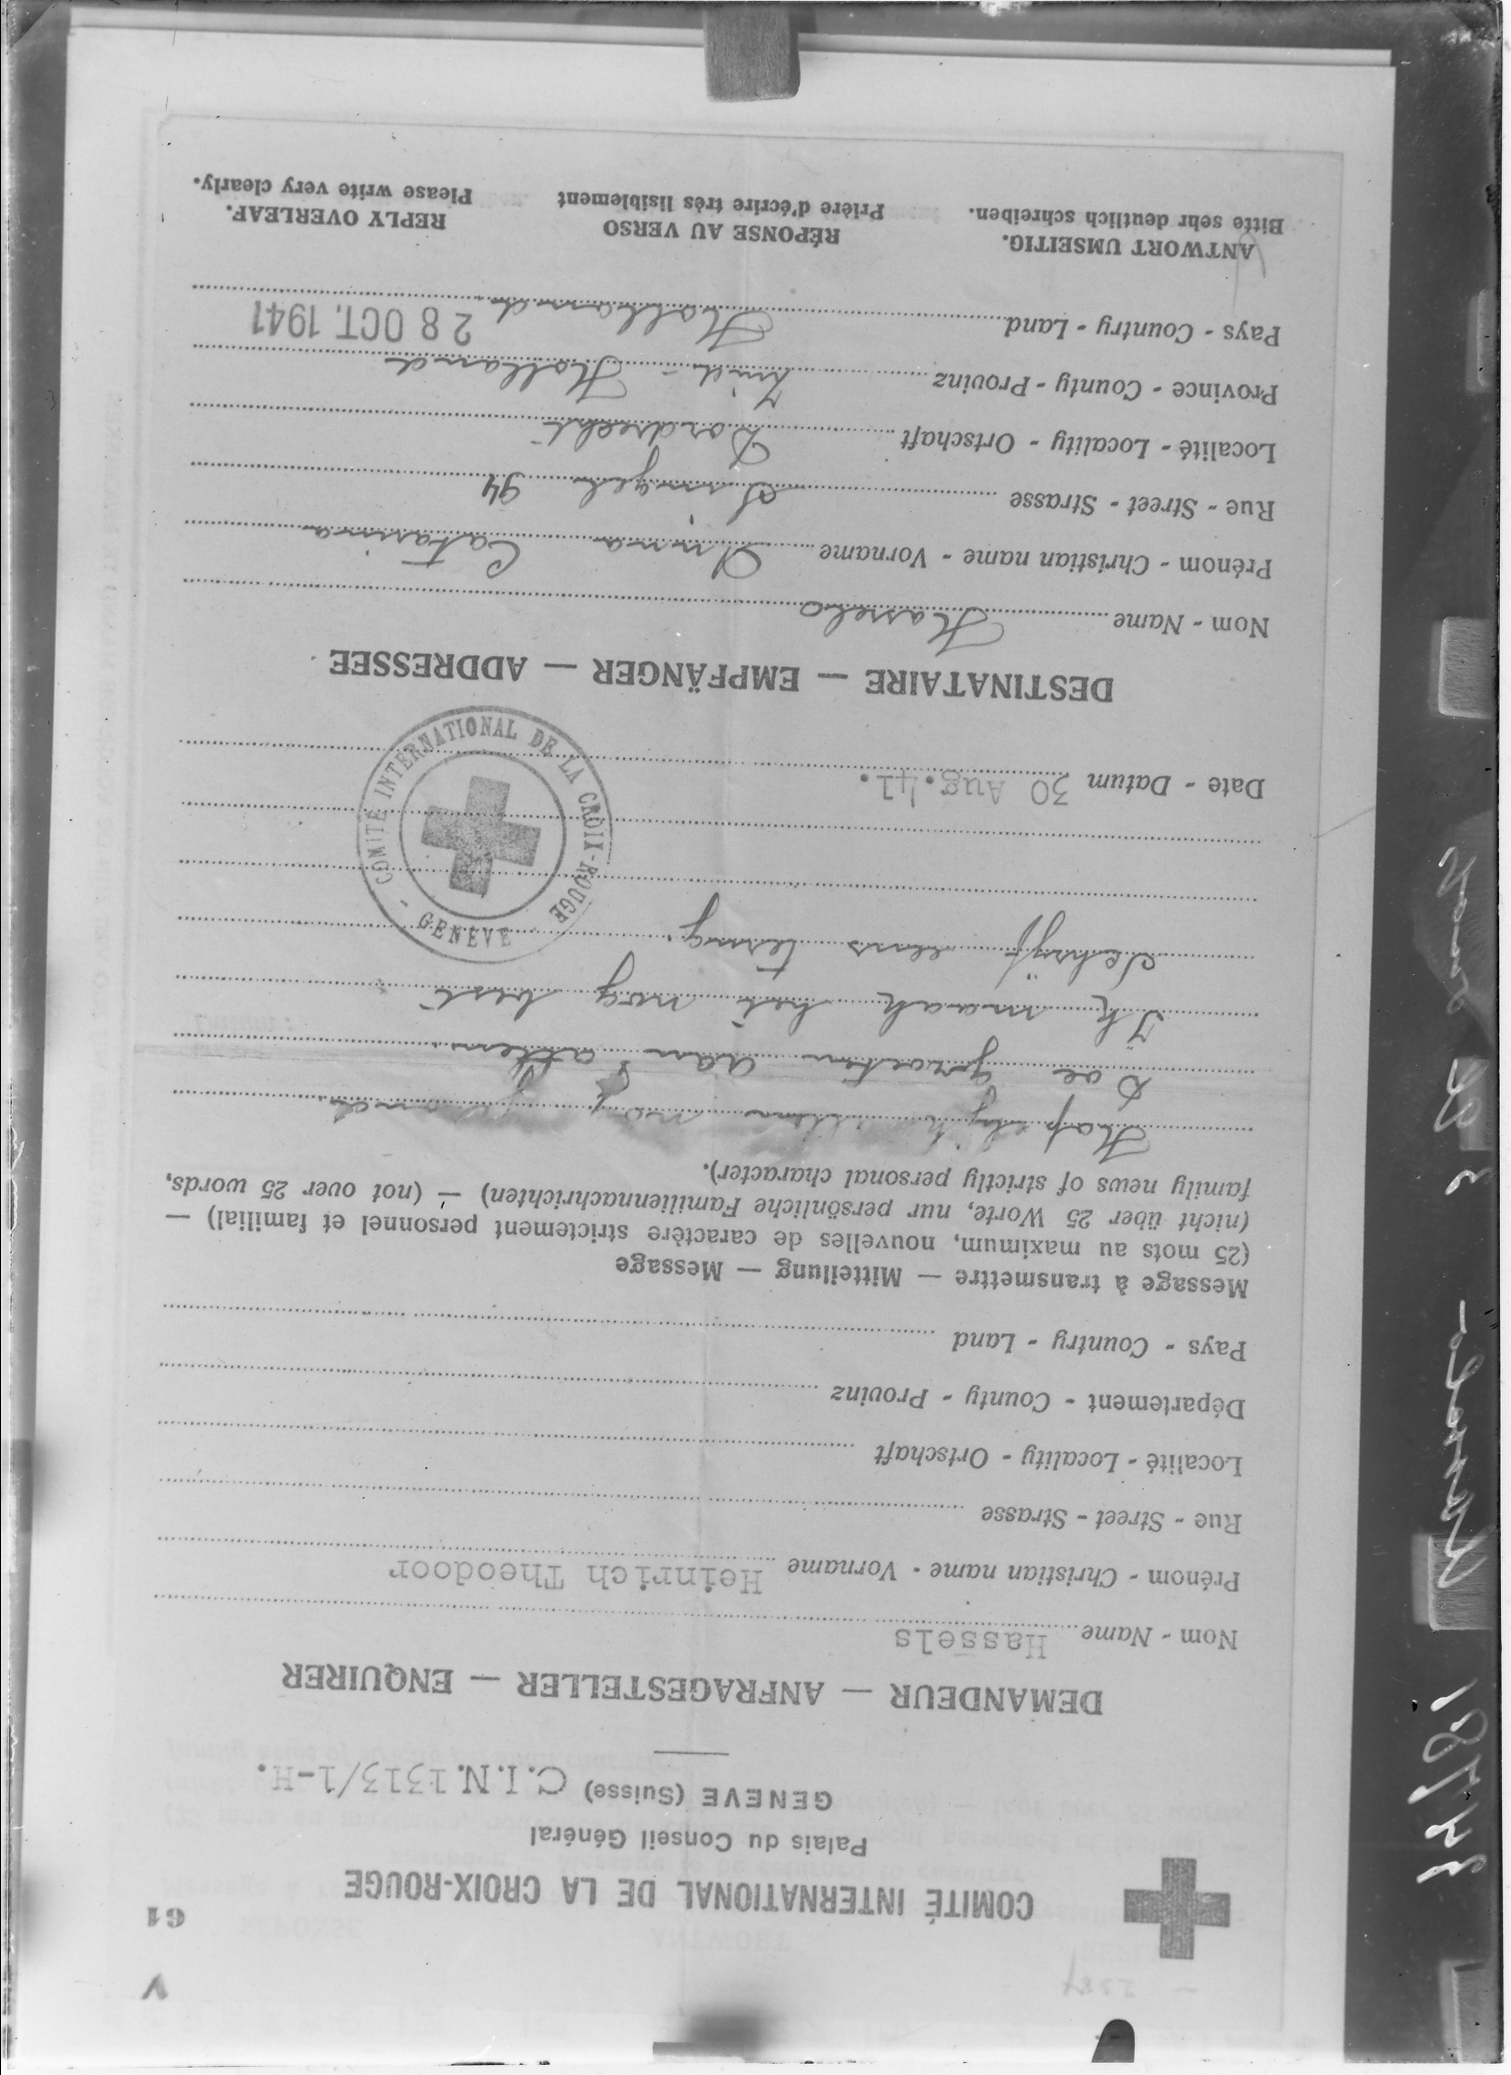 V
61
COMITÉ INTERNATIONAL DE LA CROIX-ROUGE
Palais du Conseil Général
GENÈVE (Suisse) C.I.N.1313/1-H.
DEMANDEUR — ANFRAGESTELLER — ENQUIRER
Nom - Name Hassels
Prénom - Christian name - Vorname Heinrich Theodoor
Rue - Street - Strasse
Localité - Locality - Ortschaft
Département - County - Provinz
Pays - Country - Land
Message à transmettre — Mitteilung — Message
(25 mots au maximum, nouvelles de caractère strictement personnel et familial) —
(nicht über 25 Worte, nur persönliche Familiennachrichten) — (not over 25 words,
family news of strictly personal character).
allen nog gezond.
Doe groeten aan allen.
Ik maak het nog best
Schrijf eens terug.
Date - Datum 30 Aug.41.
COMITÉ INTERNATIONAL DE LA CROIX-ROUGE
GENÈVE
DESTINATAIRE — EMPFÄNGER — ADDRESSEE
Nom - Name Hassels
Prénom - Christian name - Vorname Anna Catarina
Rue - Street - Strasse Singel 94
Localité - Locality - Ortschaft Dordrecht
Province - County - Provinz Zuid - Holland
Pays - Country - Land Holland
28 OCT. 1941
ANTWORT UMSEITIG. RÉPONSE AU VERSO REPLY OVERLEAF.
Bitte sehr deutlich schreiben. Prière d'écrire très lisiblement Please write very clearly.